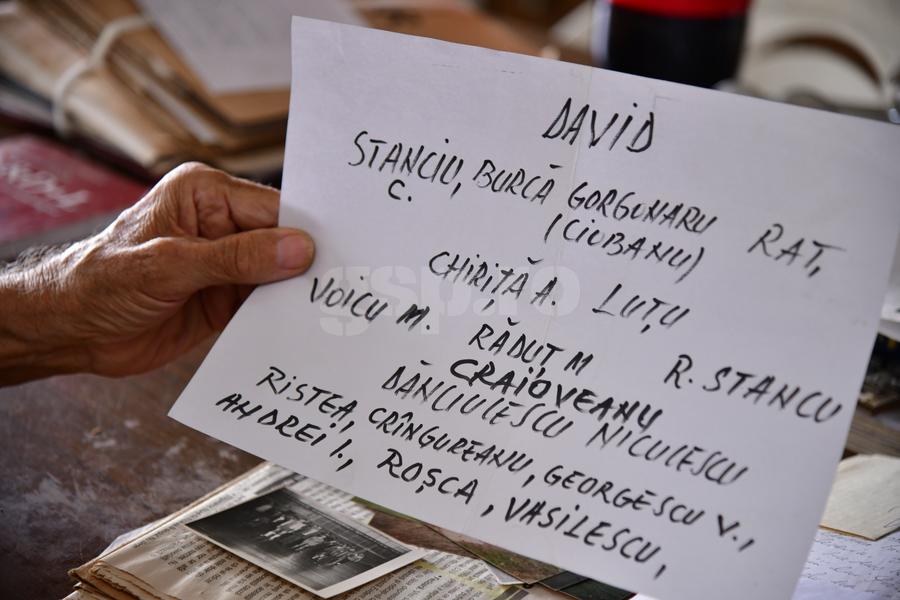 DAVID
STANCIU, BURCĂ GORGONARU RAT,
C. (CIOBANU)
CHIRIȚĂ A. LUȚU
VOICU M. RĂDUȚ M R. STANCU
CRAIOVEANU
DĂNCIULESCU NICULESCU
RISTEA, CRÎNGUREANU, GEORGESCU V.,
ANDREI I., ROȘCA, VASILESCU,
gsp.ro